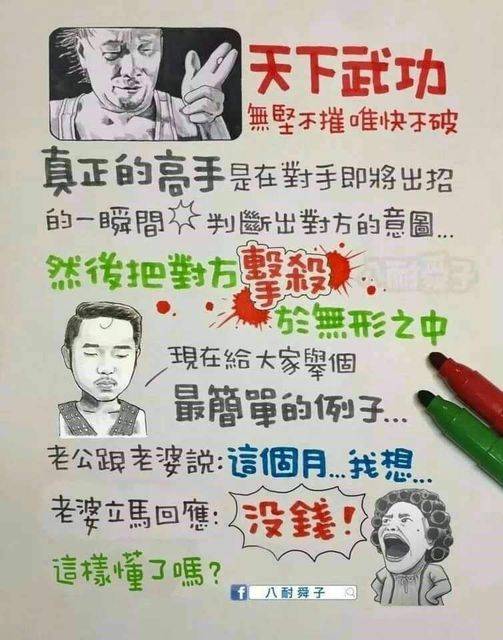 天下武功
無堅不摧 唯快不破
真正的高手是在對手即將出招
的一瞬間 判斷出對方的意圖...
然後把對方擊殺
八耐舜子
於無形之中
現在給大家舉個
最簡單的例子...
老公跟老婆說:這個月...我想...
老婆立馬回應:沒錢!
這樣懂了嗎?
f 八耐舜子